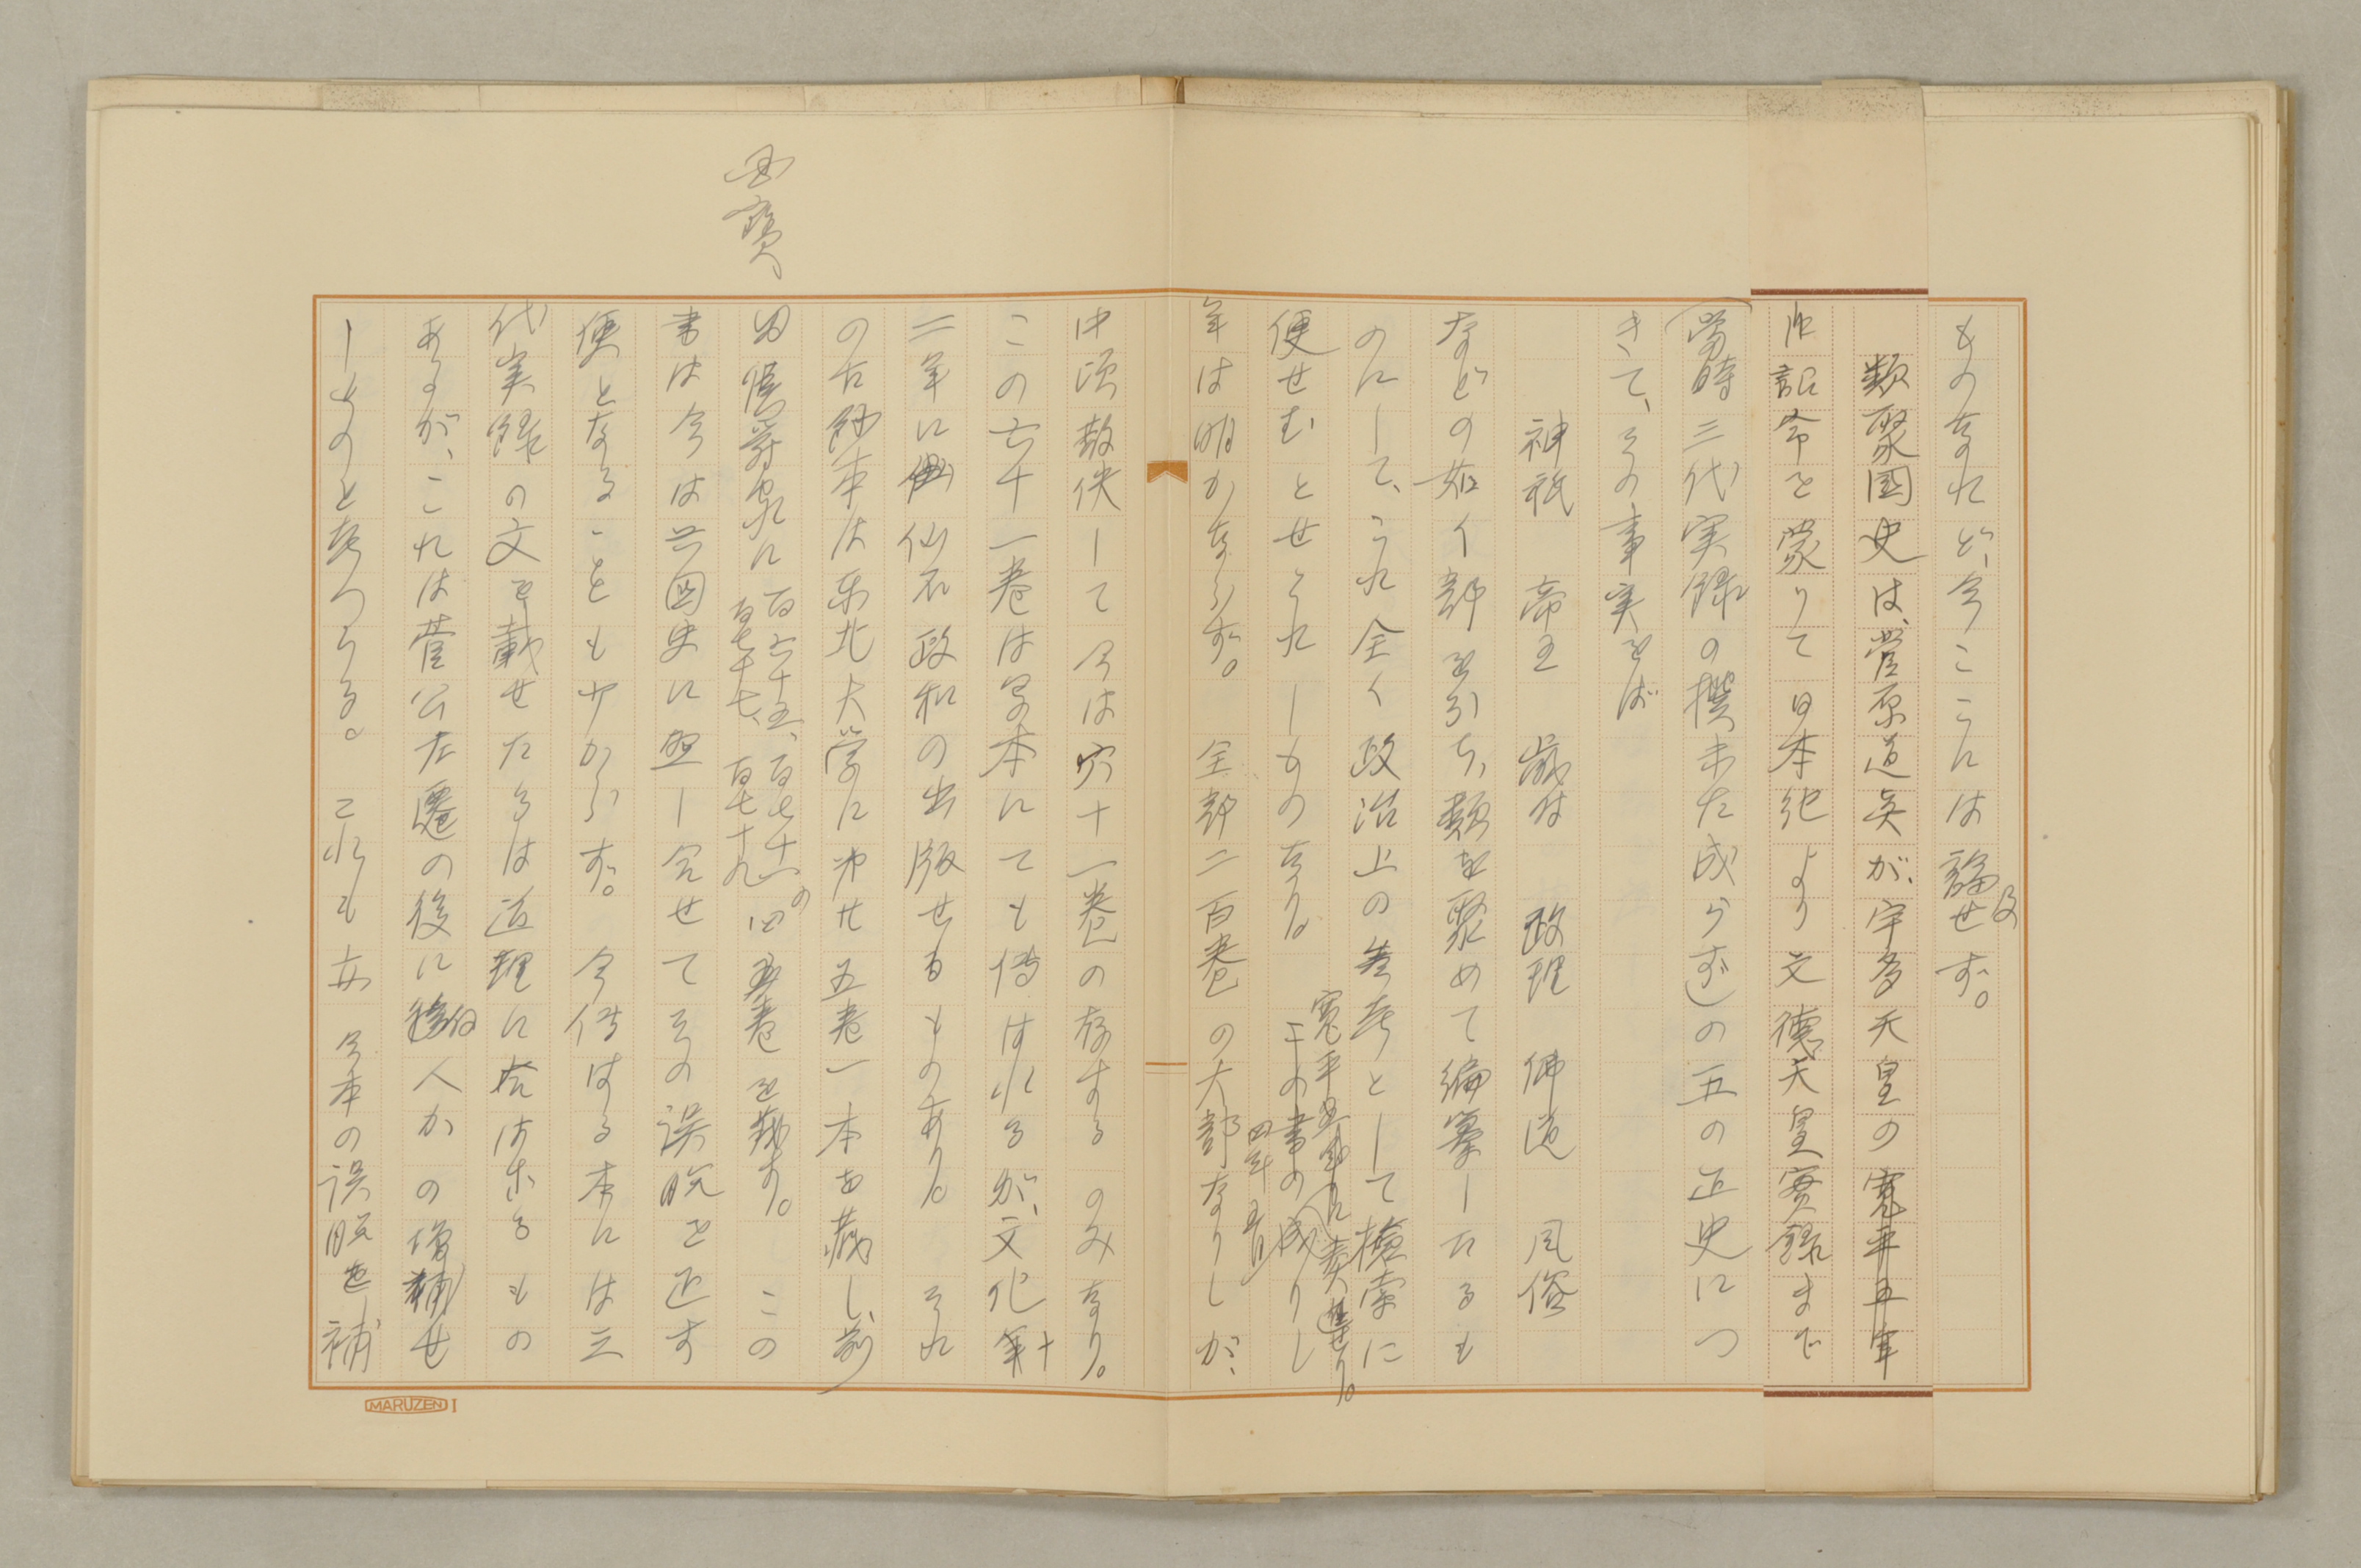 ものなれど、今ここには論及せず。
類聚國史は、菅原道真が、宇多天皇の寛平五年
に詔命を蒙りて日本紀より文徳天皇實録まで
(當時三代実録の撰未た成らず)の五の正史につ
きて、その事実をば
神祇 帝王 歳時 政理 佛道 風俗
などの如く部を別ち、類を聚めて編纂したるも
のにして、これ全く政治上の参考として檢索に
便せむとせられしものなり。この書の成りし
寛平五年に奏進せり。
四年五月
年は明かならず。 全部二百巻の大部なりしが、
中頃散佚して今は六十一巻の存するのみなり。
この六十一巻は写本にても傳はれるが、文化十
二年に仙石政和の出版せるものあり。 それ
の古鈔本は東北大学に第廿五巻一本を蔵し、前
田侯爵家に百六十五、百七十一、百七十七、百七十九の四巻を蔵す。 この
国寶
書は今は六國史に照し合せてその誤脱を正す
便となることも少からず。 今傳はる本には三
代実録の文を載せたるは道理に於て
あるが、これは菅公左遷の後に後人かの増補せ
しものと考へらる。 これも亦 今本の誤脱を補
MARUZEN I